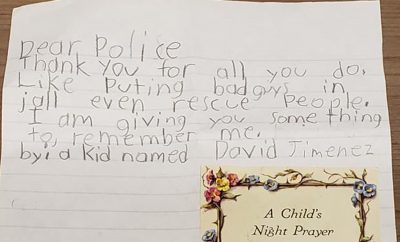 Dear Police
Thank you for all you do.
Like Puting badguys in
jail even rescue People.
I am giving you something
to remember me.
by: a Kid named David Jimenez
A Child's
Night Prayer